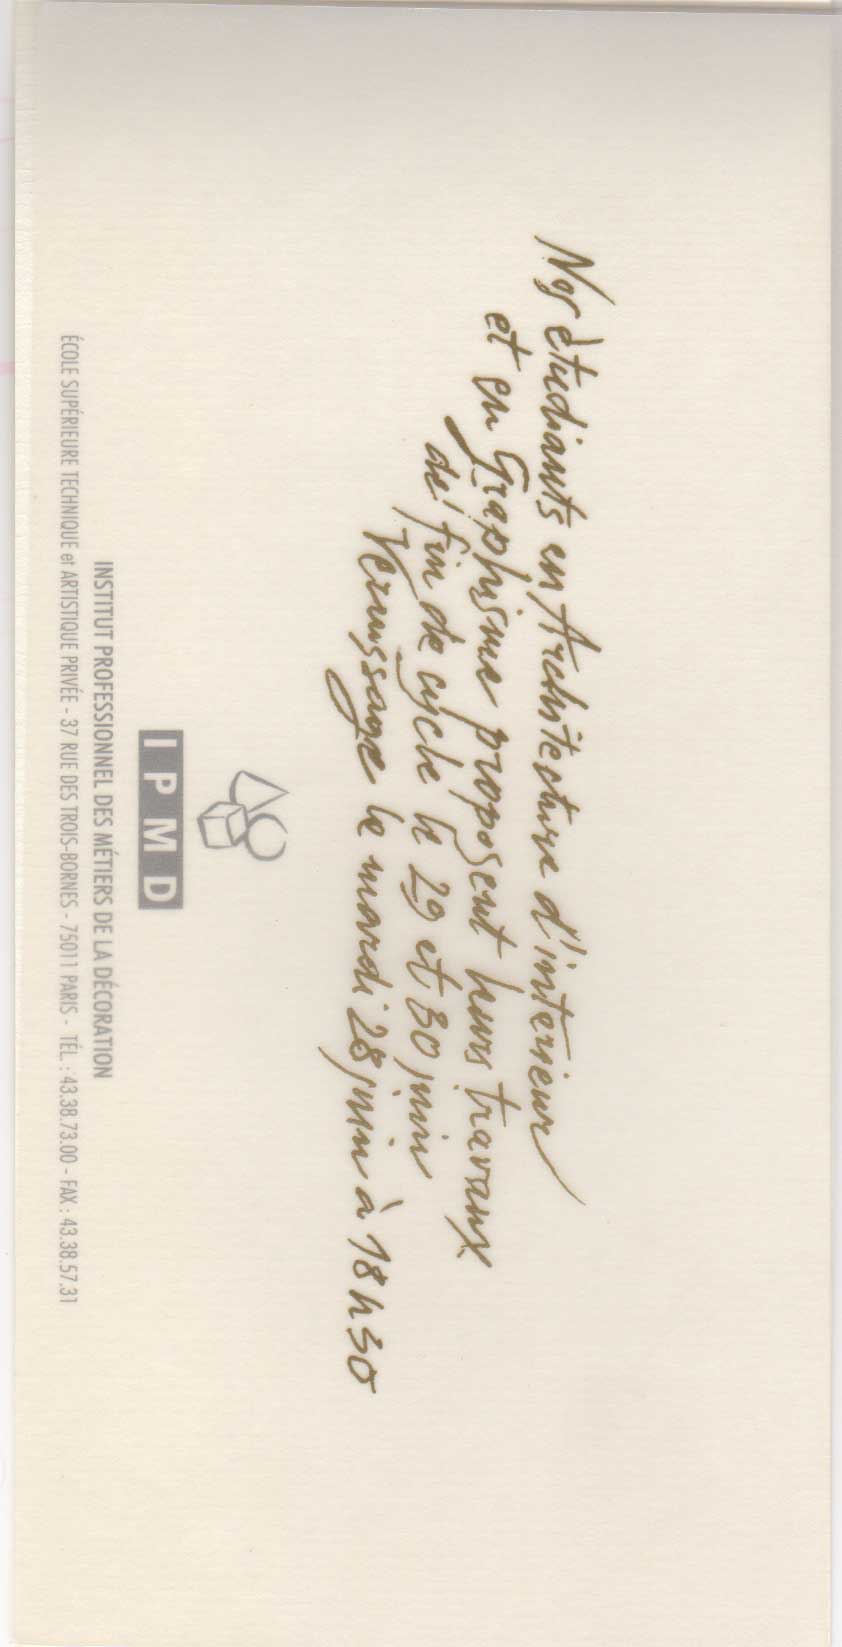 Nos étudiants en Architecture d'intérieur
et en Graphisme proposent leurs travaux
de fin de cycle le 29 et 30 juin
Vernissage le mardi 28 juin à 18h30
IPMD
INSTITUT PROFESSIONNEL DES MÉTIERS DE LA DÉCORATION
ÉCOLE SUPÉRIEURE TECHNIQUE et ARTISTIQUE PRIVÉE - 37 RUE DES TROIS-BORNES - 75011 PARIS - TÉL. : 43.38.73.00 - FAX : 43.38.57.31